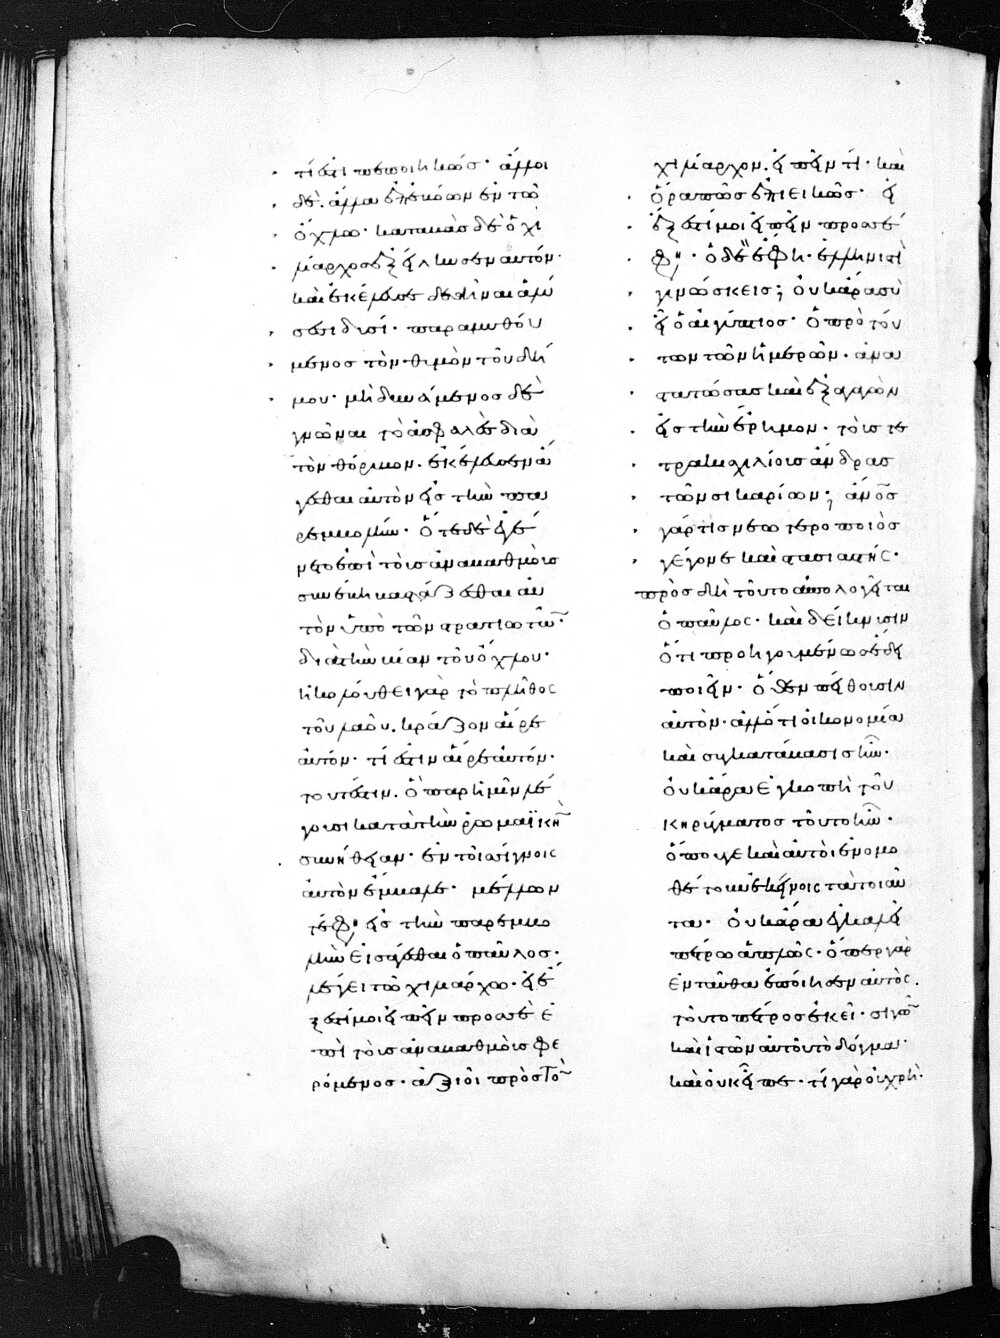 τί ἐστι πεποιηκώς· ἄλλοι
δὲ ἄλλα ἐπεφώνουν ἐν τῶ
ὄχλω· καταβὰς δὲ ὁ χι
λίαρχος ἐξείλκυσεν αὐτόν·
καὶ ἐκέλευσε δεθῆναι ἁλύ
σεσι δυσί· παραμυθού
μενος τὸν θυμὸν τοῦ δή
μου· μὴ δυνάμενος δὲ
γνῶναι τὸ ἀσφαλὲς διὰ
τὸν θόρυβον· ἐκέλευσεν ἄ
γεσθαι αὐτὸν εἰς τὴν πα
ρεμβολήν· ὅτε δὲ ἐγέ
νετο ἐπὶ τοὺς ἀναβαθμοὺς
συνέβη βαστάζεσθαι αὐ
τὸν ὑπὸ τῶν στρατιωτῶν·
διὰ τὴν βίαν τοῦ ὄχλου·
ἠκολούθει γὰρ τὸ πλῆθος
τοῦ λαοῦ κράζον αἶρε
αὐτόν· τί ἐστιν αἶρε αὐτόν·
τουτέστιν· ὃ παρ' ἡμῖν λέ
γουσι κατὰ τὴν ῥωμαϊκὴν
συνήθειαν· ἐν τοῖς σίγνοις
αὐτὸν ἔμβαλε· μέλλων
τέ φησιν εἰς τὴν παρεμβο
λὴν εἰσάγεσθαι ὁ παῦλος·
λέγει τῶ χιλιάρχω· εἰ ἔ
ξεστί μοι εἰπεῖν πρός σε· ἐ
πὶ τοὺς ἀναβαθμοὺς φε
ρόμενος· ἀξιοῖ πρὸς τὸν
χιλίαρχον εἰπεῖν τί· καὶ
ὅρα πῶς ἐπιεικῶς· εἰ
ἔξεστί μοι εἰπεῖν πρός σέ
φησιν· ὁ δὲ ἔφη· ἑλληνιστὶ
γινώσκεις; οὐκ ἄρα σὺ
εἶ ὁ αἰγύπτιος· ὁ πρὸ τού
των τῶν ἡμερῶν· ἀνα
στατώσας καὶ ἐξαγαγὼν
εἰς τὴν ἔρημον· τοὺς τε
τρακισχιλίους ἄνδρας
τῶν σικαρίων; ἄνος
γάρ τις νεωτεροποιὸς
γέγονε καὶ στασιαστής·
πρὸς δὴ τοῦτο ἀπολογεῖται
ὁ παῦλος· καὶ δείκνυσιν
ὅτι προηγουμένως οὐδὲ
ποιεῖν· ὅθεν πείθουσιν
αὐτὸν· ἀλλ' ὅτι οἰκονομία
καὶ συγκατάβασις ἦν·
οὐκ ἄρα ἐγκοπὴ τοῦ
κηρύγματος τοῦτο ἦν·
ὅπου γε καὶ αὐτοὶ ἐνομο
θέτουν ἐκείνοις τὰ τοιαῦ
τα· οὐκ ἄρα ἐγκαλεῖ
πέτρω ἁπλῶς· ὅπερ γὰρ
ἐνταῦθα ἐποίησεν αὐτὸς·
τοῦτο πέτρος ἐκεῖ· σιγῶν
καὶ ἱστῶν αὐτοῦ τὸ δόγμα·
καὶ οὐκ εἶπε· τί γάρ οὐ χρὴ·